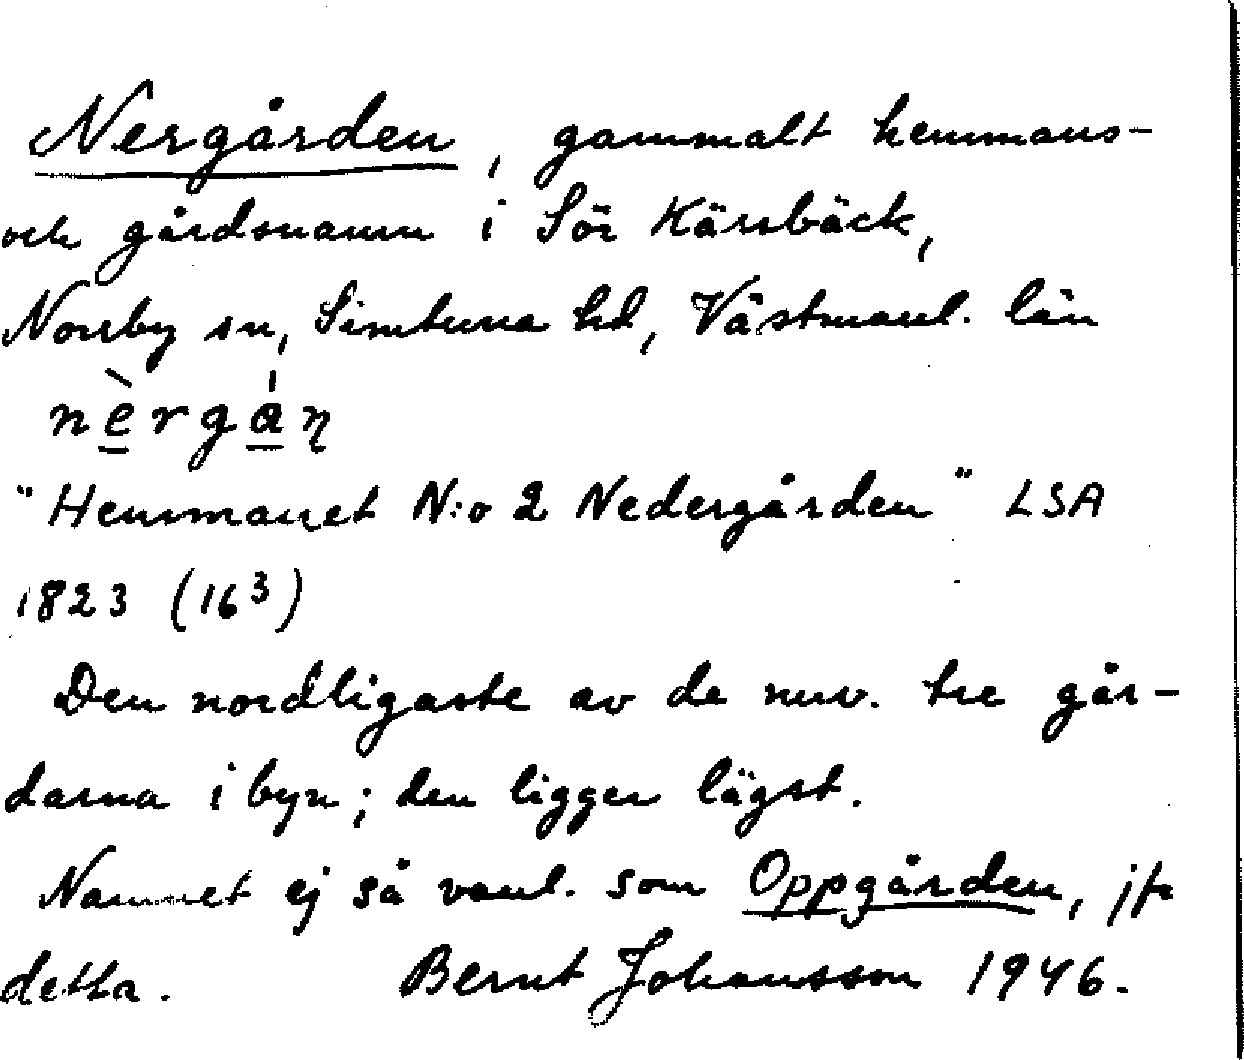 Nergården, gammalt hemmans-
och gårdsnamn i Sör Kärrbäck,
Norrby sn, Simtuna hd, Västmanl. län
nè̠rgá̠ŋ
"Hemmanet N:o 2 Nedergården" LSA
1823 (16³)
Den nordligaste av de nuv. tre går-
darna i byn; den ligger lägst.
Namnet ej så vanl. som Oppgården, jfr
detta. Bernt Johansson 1946.